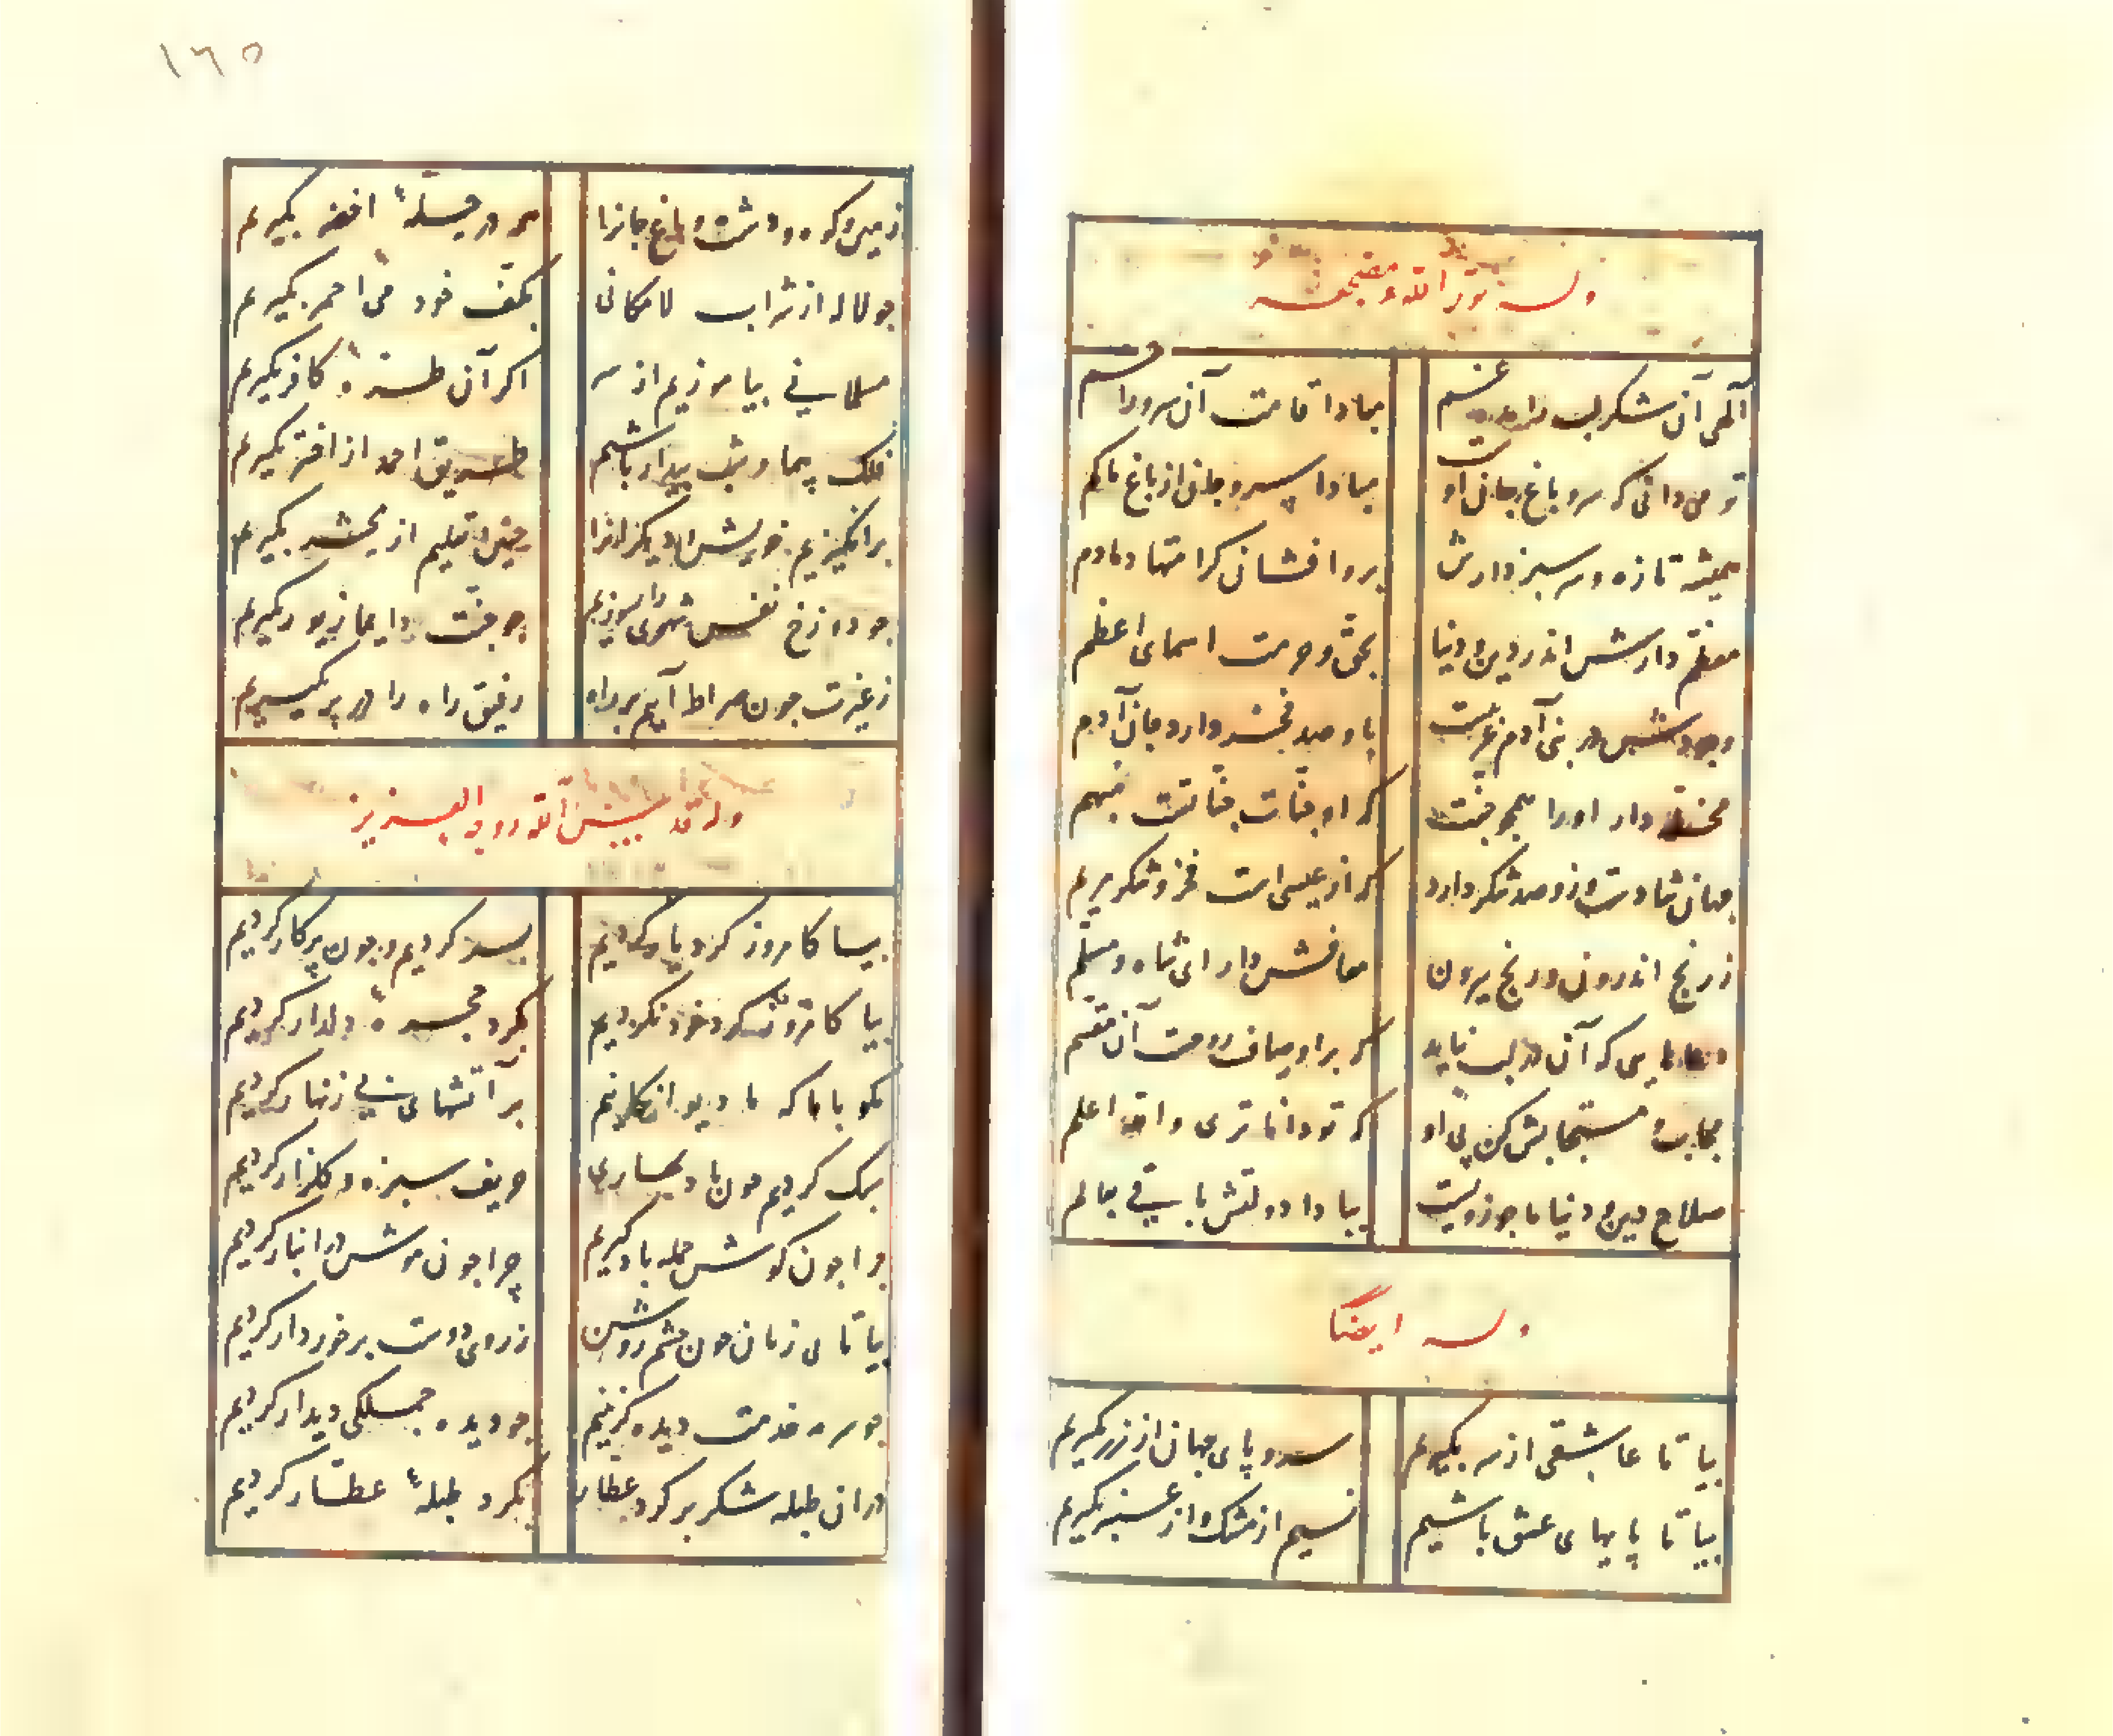 وله نور الله مضجعه
الهی آن شکر لب را مده غم
مبادا قامت آن سرو را خم
تو می دانی که سرو باغ جانی او
مبادا سرو جان از باغ ما کم
همیشه تازه و سر سبز دارش
برو افشان کرامتها دمادم
معظم دارش اندر دین و دنیا
بحق و حرمت اسمای اعظم
وجودش در بنی آدم غریبست
باو صد فخر دارد جان آدم
مخلد دار او را همچو جنت
که او جنات جناتست مبهم
جهان شادست وزو صد شکر دارد
که از عیسی است فخر و شکر مریم
ز رنج اندرونی و رنج بیرون
معافش دار ای شاه و مسلم
دعاهایی که آن در لب نیاید
که بر اوصاف روحست آن مقسم
مجاب و مستجابش کن پی او
که تو داناتری والله اعلم
صلاح دین و دنیا ما جو زویست
مبادا دولتش باقی بعالم
وله ایضا
بیا تا عاشقی از سر بگیریم
سر و پای جهان از زر بگیریم
بیا تا پابهای عشق باشیم
نسیم از مشک و از عنبر بگیریم
١٦٥
زمین و کوه و دشت و باغ جانرا
همه در حلهٔ اخضر بگیریم
جو لاله از شراب لامکانی
بکف خود می احمر بگیریم
مسلمانی بیاموزیم از سر
اکر آن طرهٔ کافر بگیریم
فلک پیما و شب بیدار باشیم
طریق احمد از اختر بگیریم
برانکیزیم خویش دیکرانرا
جو دوزخ نفس شهوی را بسوزیم
ز غیرت جون صراط آییم بر راه
رفیق راه را در بر بکیریم
وله قدس الله روحه العزیز
بیا کامروز کرد یار کردیم
بسر کردیم و جون پرکار کردیم
بیا کامروز کرد خود نکردیم
بکرد حجرهٔ دلدار کردیم
مکو با ما که ما دیوانکانیم
بر آتشهای بی زنهار کردیم
سبک کردیم جون باد بهاری
حریف سبزه و کلزار کردیم
جرا جون کوش جمله باد کیریم
چرا جون موش در انبار کردیم
بیا تا یی زمان جون چشم روشن
ز روی دوست برخوردار کردیم
جو سرمه خدمت دیده کزینیم
جو دیده جملکی دیدار کردیم
دران طبله شکر بر کرد عطار
بکرد طبلهٔ عطار کردیم